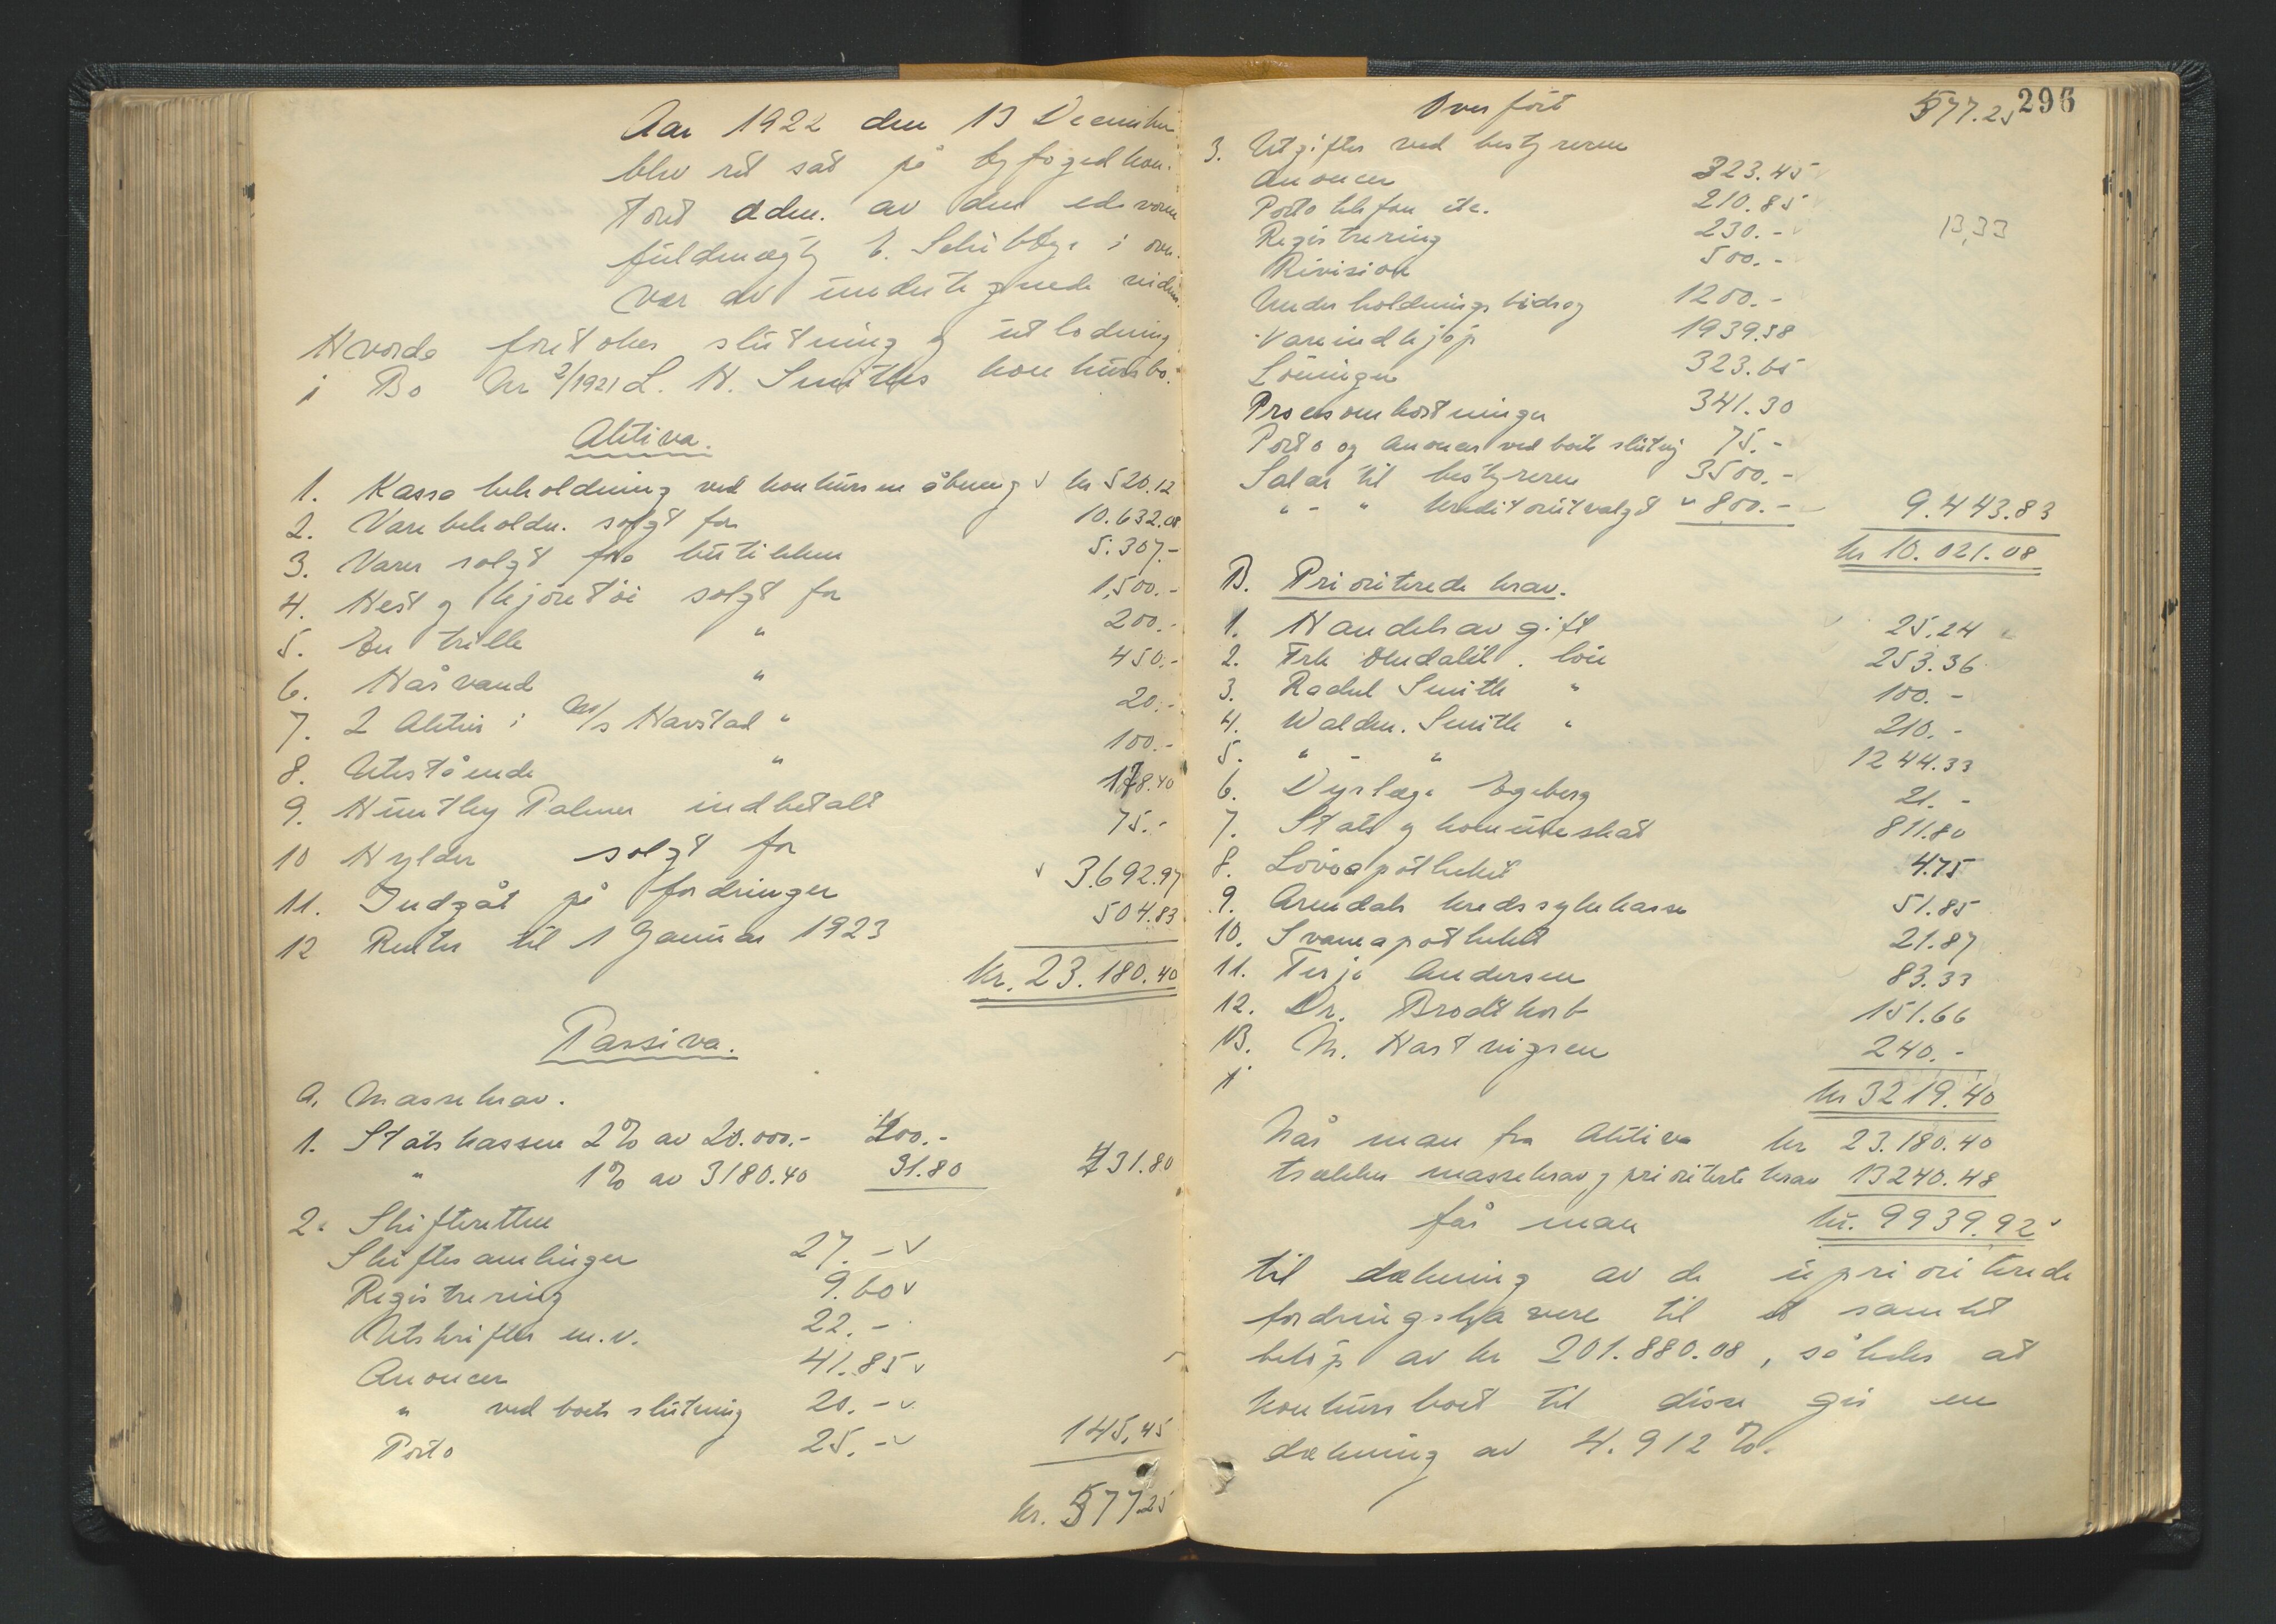 Aar 1922 den 13 December
blev ret sat på byfogedkon-
toret adm. av den edsvorne
fuldmægtig E. Schibbye i over-
vær av undertegnede vidner.
Hvorda foretokes slutning og utlodning
i Bo Nr 2/1921 L. H. Smiths konkursbo.
Aktiva.
1. Kassabeholdning ved konkursens åbning v kr 520.12
2. Varebeholdn. solgt for 10.632.08
3. Varer solgt fra butikken 5.307.-
4. Hest og kjøretøi solgt for 1,500.-
5. En trille " 200.-
6. Hårvand " 450.-
7. 2 Aktier i M/s Harstad " 20.-
8. Utestående " 100.-
9. Huntley Palmer indbetalt 178.40
10 Hylder solgt for 75.-
11. Indgåt på fordringer v 3.692.97
12 Renter til 1 Januar 1923 504.83
kr. 23.180.40
Passiva.
A. Massekrav.
1. Statskassen 2% av 20.000.- 400.-
" 1% av 3180.40 31.80 431.80
2. Skifteretten
Skiftesamlinger 27.- v
Registrering 9.60 v
Utskrifter m.v. 22.-
Anoncer 41.85 v
" ved boets slutning 20.- v
Porto 25.- v 145,45
kr. 577.25
Overført 577.25 296
3. Utgifter ved bestyreren
Anoncer 323.45
Porto telefon etc. 210.85
Registrering 230.- 13,33
Revision 500.-
Underholdningsbidrag 1200.-
Vareindkjøp 1939.58
Lønninger 323.65
Procesomkostninger 341.30
Porto og anoncer ved boets slutnig 75.-
Salar til bestyreren 3500.-
" - " kreditorutvalgt " 800.- 9.443.83
kr 10.021.08
B. Prioriterede krav.
1. Handelsavgift 25.24
2. Frk Omdahl. løn 253.36
3. Rachel Smith " 100.-
4. Waldm. Smith " 210.-
5. " - " 1244.33
6. Dyrlæge Egeberg 21.-
7. Stats og komuneskat 811.80
8. Løveapotheket 4.75
9. Arendals kredssykekasse 51.85
10. Svaneapotheket 21.87
11. Terje Andersen 83.33
12. Dr. Brodtkorb 151.66
13. M. Hartvigsen 240.-
kr 3219.40
Når man fra Aktiva kr 23.180.40
trækker massekrav og prioriterte krav 13240.48
får man kr. 9939.92 v
til dækning av de uprioriterede
fordringshavere til et samlet
beløp av kr 201.880.08, således at
konkursboet til disse gir en
dækning av 4.912%.